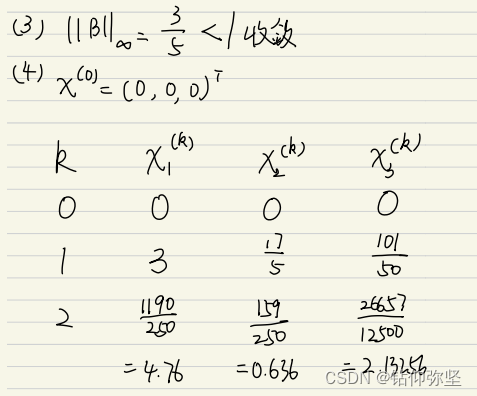 (3) ||B||∞ = 3/5 < 1 收敛
(4) x^(0) = (0, 0, 0)^T
k x₁^(k) x₂^(k) x₃^(k)
0 0 0 0
1 3 17/5 101/50
2 1190/250 159/250 26657/12500
=4.76 =0.636 =2.13256
CSDN @钻仰弥坚